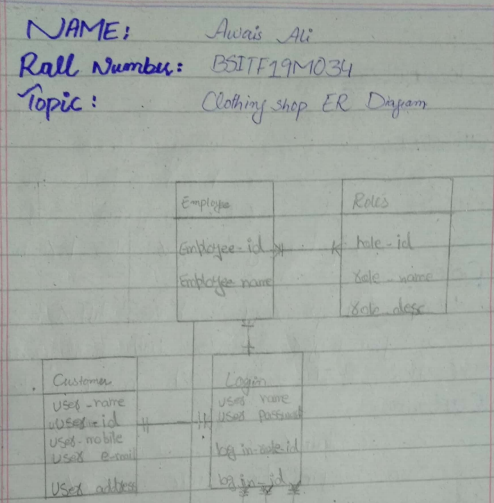 NAME: Awais Ali
Rall Number: BSITF19M034
Topic: Clothing shop ER Diagram
Employee
Employee-id
Employee name
Roles
role-id
role-name
role-desc
Customer
user-name
user-id
user-mobile
user e-mail
user address
Login
user name
user password
log in-role-id
log in-id